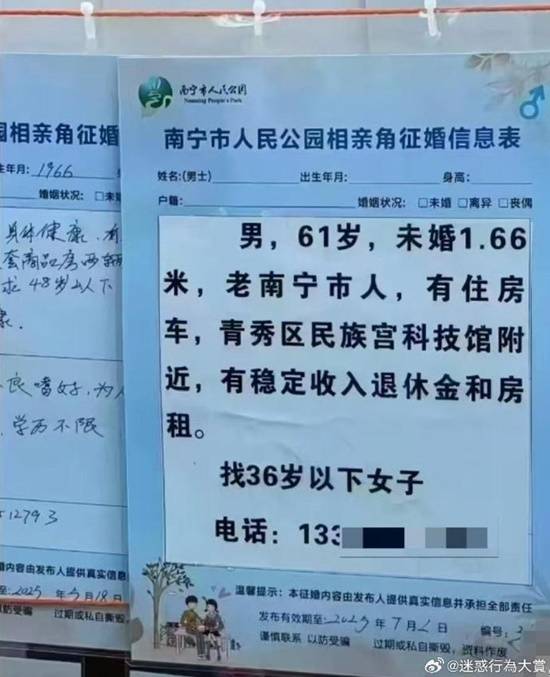 南宁市人民公园
Nanning People's Park
南宁市人民公园相亲角征婚信息表
姓名:(男士) 出生年月: 身高:
户籍: 婚姻状况: □未婚 □离异 □丧偶
男，61岁，未婚1.66
米，老南宁市人，有住房
车，青秀区民族宫科技馆附
近，有稳定收入退休金和房
租。
找36岁以下女子
电话：133
温馨提示：本征婚内容由发布人提供真实信息并承担全部责任
发布有效期至: 2025年7月2日 编号:
谨慎联系 以防受骗 过期或私自撕毁，资料作废
园相亲角征婚
年月: 1966
婚姻状况: □未
身体健康
套商品房两辆
求48岁以下
康.
良嗜好,为人
学历不限
12793
内容由发布人提供真实信息
至: 2025年5月18日
以防受骗 过期或私自撕毁
@迷惑行为大赏